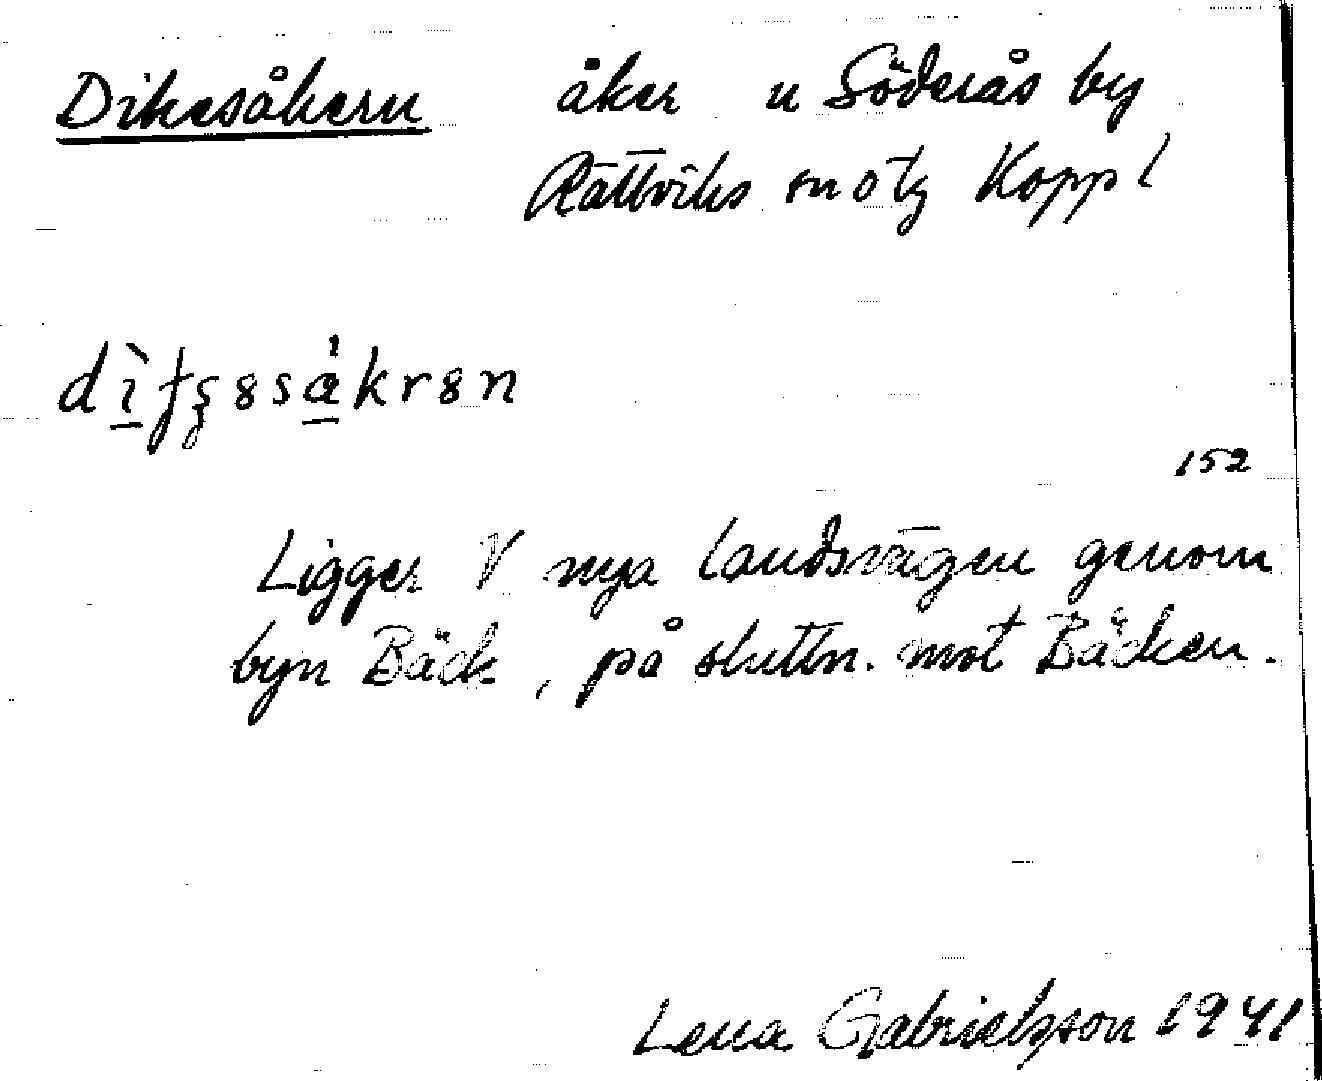 Dikesåkern åker u Söderås by
Rättviks sn o tg Kopp l
152
Ligger V nya landsvägen genom
byn Bäck, på sluttn. mot Bäcken.
Lena Gabrielsson 1941